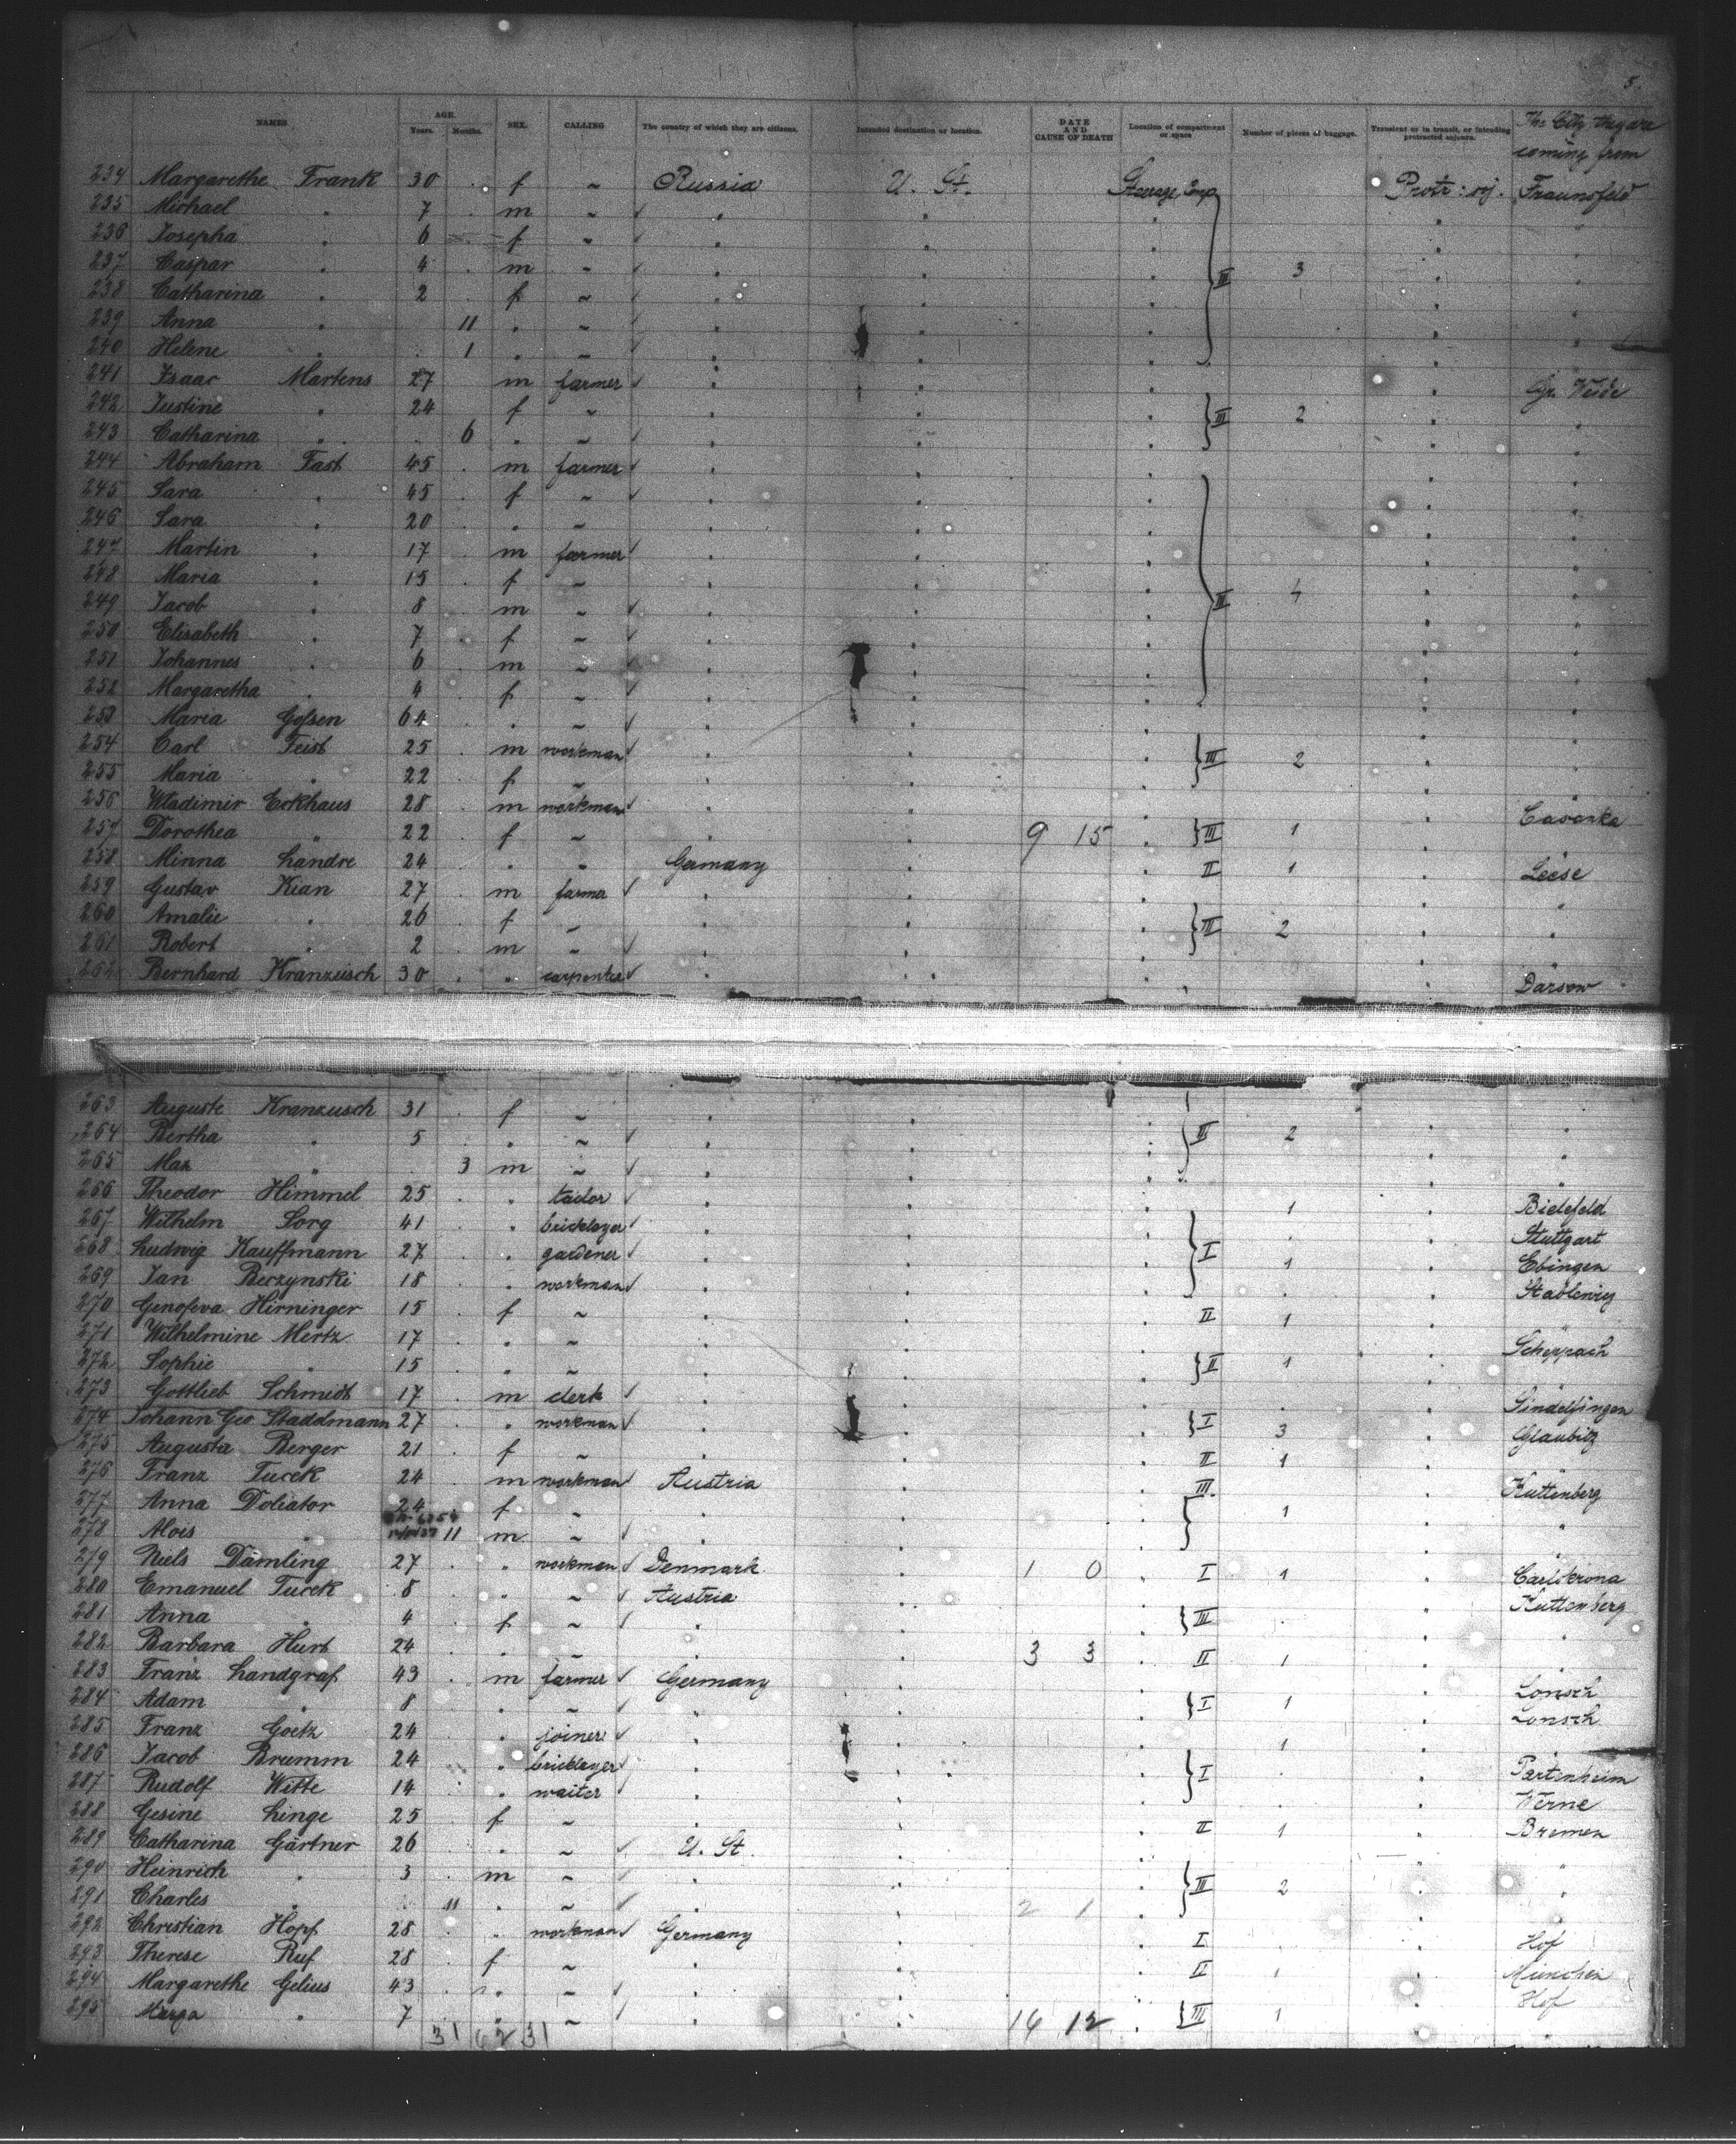 5.
NAMES AGE. Years. Months. SEX. CALLING The country of which they are citizens. Intended destination or location. DATE AND CAUSE OF DEATH Location of compartment or space Number of pieces of baggage. Transient or in transit, or intending protracted sojourn. The City they are coming from
234 Margarethe Frank 30 . f ~ Russia U. St. Steerage Comp Protr: soj. Traunsfeld
235 Michael " 7 . m ~
236 Josepha " 6 f ~
237 Caspar " 4 . m ~ III 3
238 Catharina " 2 . f ~
239 Anna " 11 " ~
240 Helene " 1 " ~
241 Isaac Martens 27 m farmer Gr. Weide
242 Justine " 24 f ~ III 2
243 Catharina " 6 " ~
244 Abraham Fast 45 . m farmer
245 Sara " 45 . f ~
246 Sara " 20 . " ~
247 Martin " 17 . m farmer
248 Maria " 15 . f ~
249 Jacob " 8 . m ~ III 4
250 Elisabeth " 7 . f ~
251 Johannes " 6 . m ~
252 Margaretha " 4 . f ~
253 Maria Gossen 64 . " ~
254 Carl Feist 25 . m workman III 2
255 Maria " 22 . f ~
256 Wladimir Eckhaus 28 . m workman
257 Dorothea " 22 . f ~ 9 15 III 1
258 Minna Ländre 24 . " ~ Germany II 1 Leese
259 Gustav Kian 27 . m farma
260 Amalie " 26 . f ~ III 2
261 Robert " 2 . m ~
262 Bernhard Kranzusch 30 . " carpenter Darsow
263 Auguste Kranzusch 31 . f ~
264 Bertha " 5 . " ~ III 2
265 Max " 3 m ~
266 Theodor Himmel 25 . " tailor 1 Bielefeld
267 Wilhelm Sorg 41 . " bricklayer . Stuttgart
268 Ludwig Kauffmann 27 . " gardener I 1 Ebingen
269 Jan Beczynski 18 . " workman
270 Genofeva Hirninger 15 . f ~ II 1
271 Wilhelmine Mertz 17 . " ~ Scheppach
272 Sophie " 15 . " ~ II 1
273 Gottlieb Schmidt 17 . m clerk . Sindelfingen
274 Johann Geo Stadelmann 27 . " workman I 3 Glaubitz
275 Augusta Berger 21 . f ~ II 1
276 Franz Turek 24 . m workman Austria III Kuttenberg
277 Anna Doliator 24 f ~ 1 "
278 Alois " 11 m ~
279 Niels Dämling 27 . " workman Denmark 1 0 I 1 Carlskrona
280 Emanuel Turek 8 . " ~ Austria Kuttenberg
281 Anna " 4 . f ~ III
282 Barbara Hurt 24 . " ~ 3 3 II 1
283 Franz Landgraf 43 . m farmer Germany Lonsch
284 Adam " 8 . " ~ I 1 Lonsch
285 Franz Goetz 24 . " joiner 1
286 Jacob Brumm 24 . " bricklayer I . Partenheim
287 Rudolf Witte 14 . " waiter . Werne
288 Gesine Linge 25 . f ~ II 1 Bremen
289 Catharina Gärtner 26 . " ~ U. St.
290 Heinrich " 3 . m ~ III 2
291 Charles " 11 " ~ 2 1
292 Christian Hopf 28 . " workman Germany I . Hof
293 Therese Ruf 28 . f ~ II 1 München
294 Margarethe Gelius 43 . " ~ Hof
295 Marga " 7 . " ~ 14 12 III 1
31 62 31